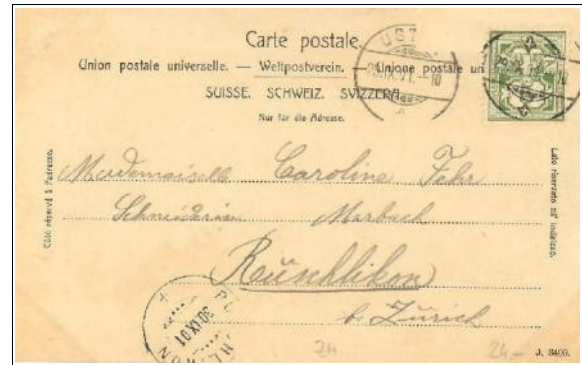 Carte postale.
Union postale universelle. — Weltpostverein. — Unione postale un
SUISSE. SCHWEIZ. SVIZZERA.
Nur für die Adresse.
Côté réservé à l'adresse.
Lato riservato all' indirizzo.
Mademoiselle Caroline Fehr
Schneiderin Marbach
Rüschlikon
b. Zürich
UST
30.IX.01
ZH
24.–
J. 3400.